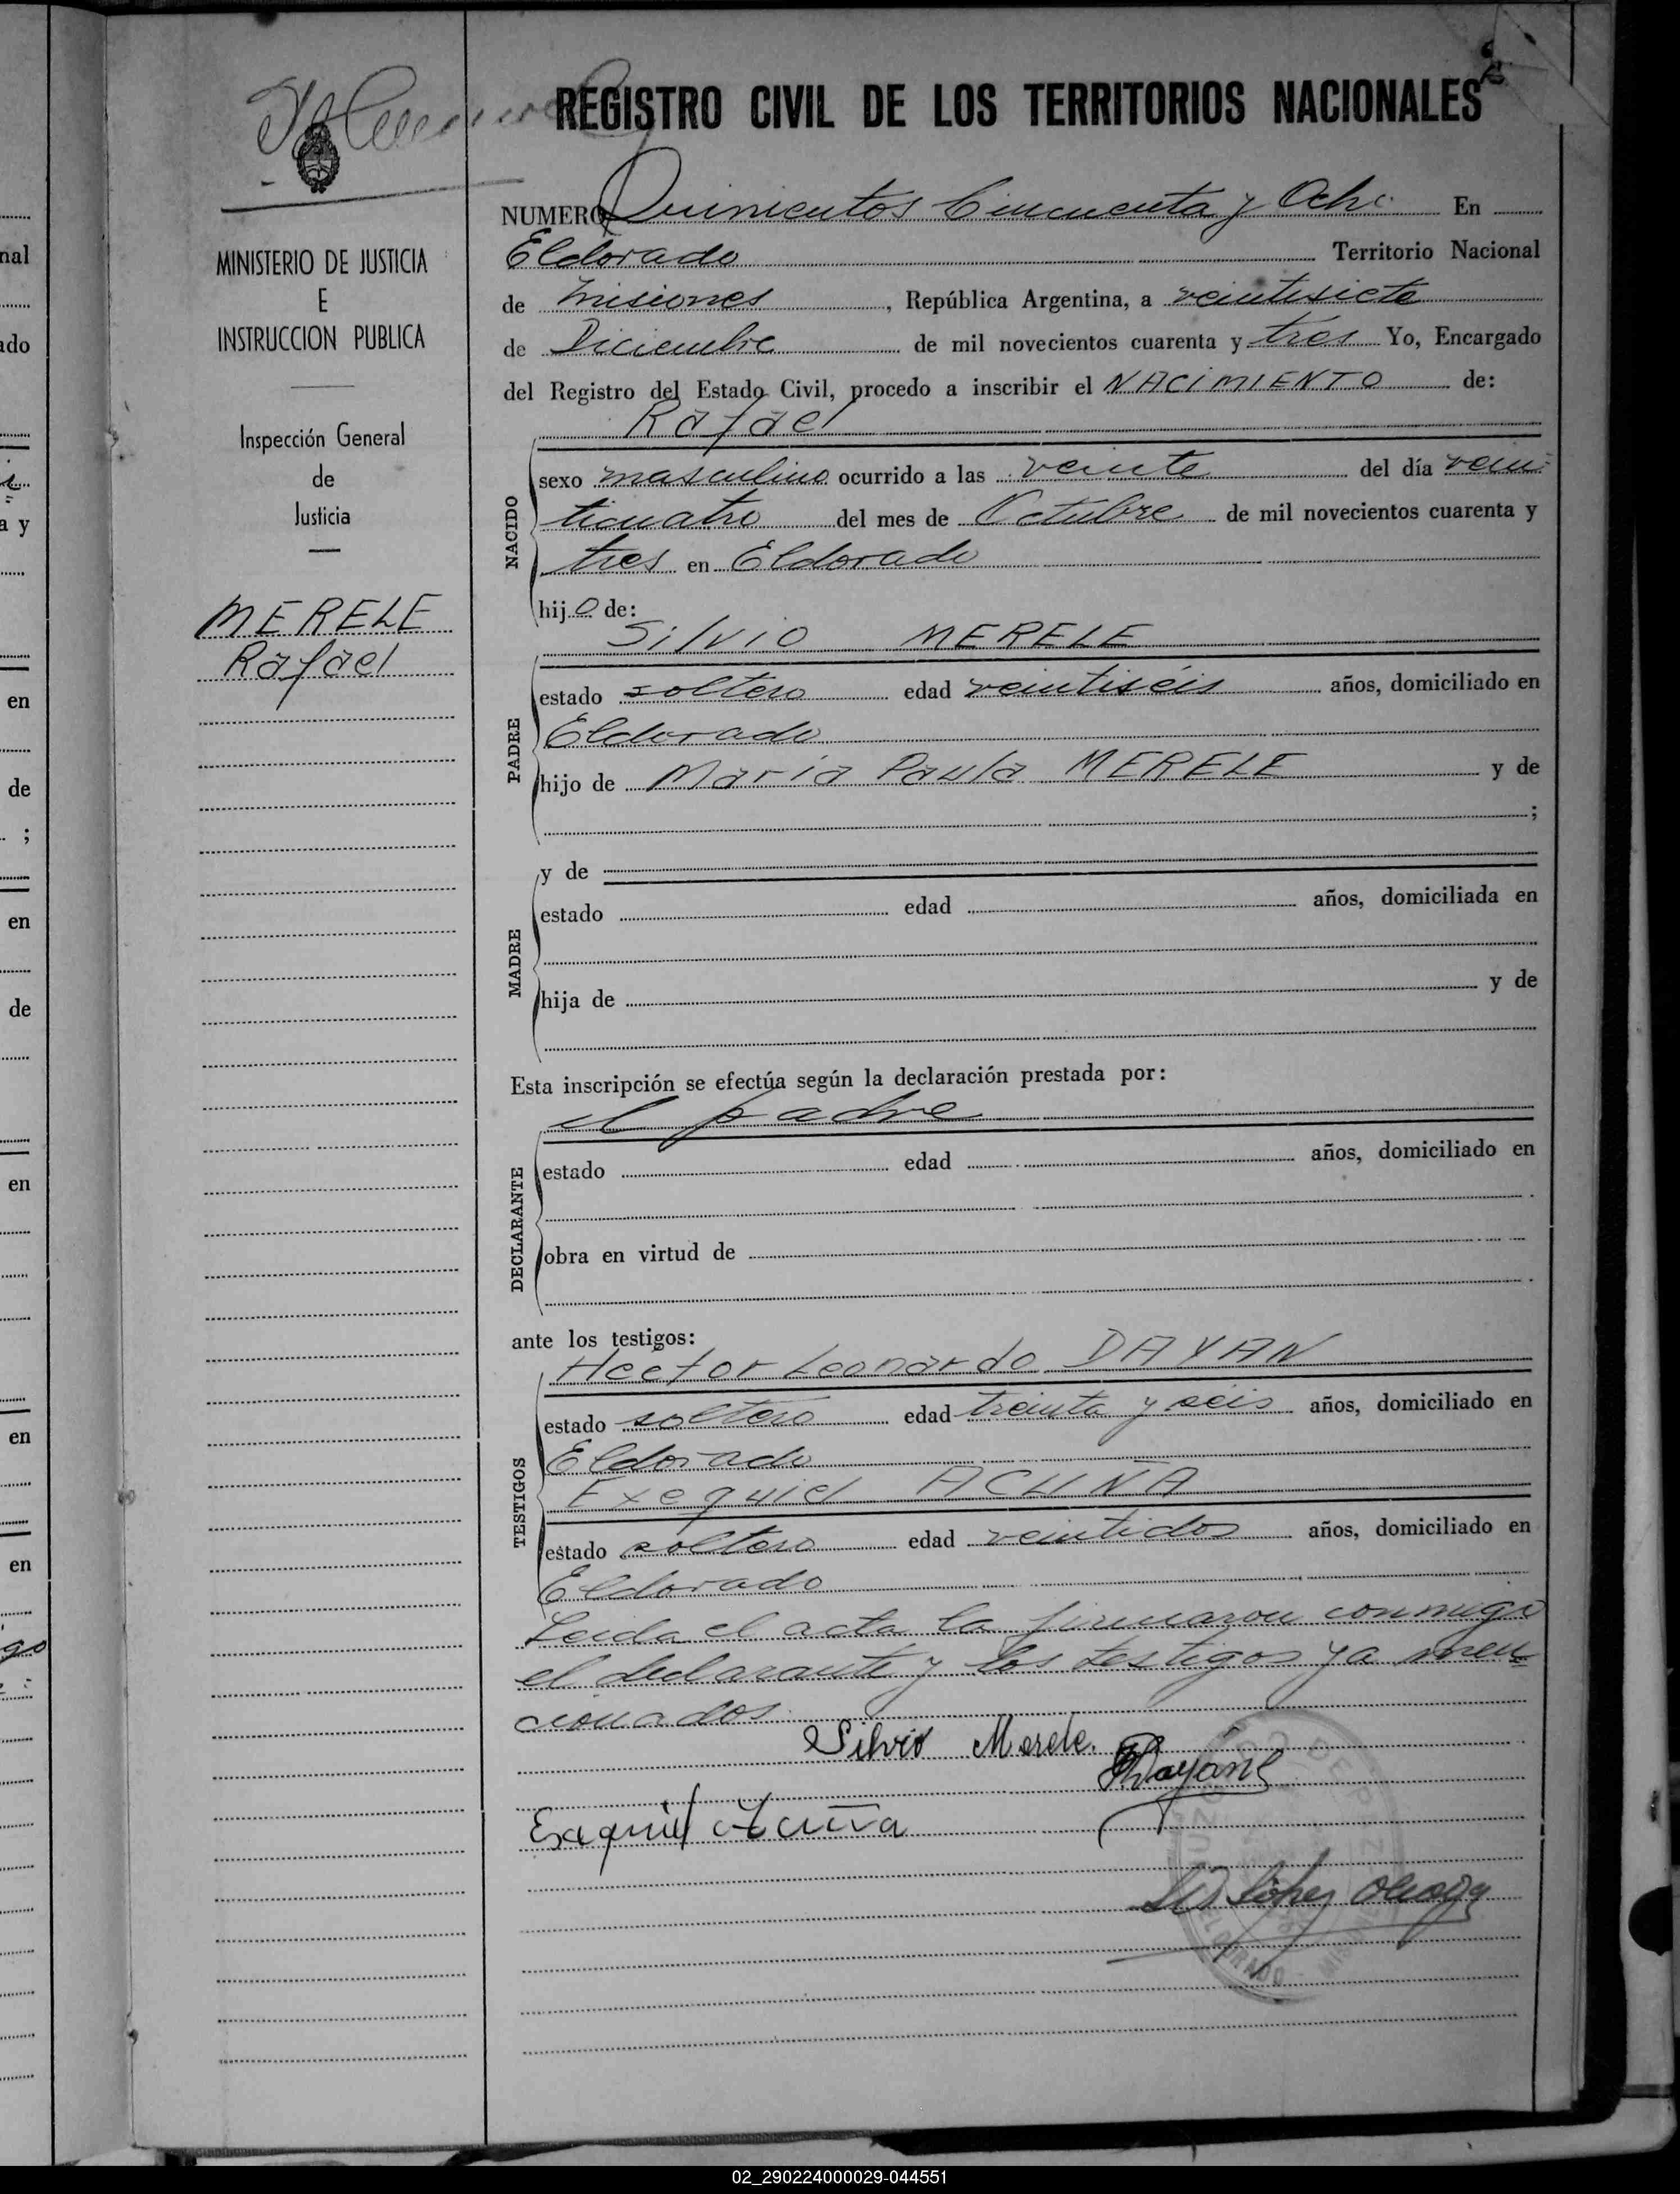 REGISTRO CIVIL DE LOS TERRITORIOS NACIONALES
MINISTERIO DE JUSTICIA
E
INSTRUCCION PUBLICA
Inspección General
de
Justicia
MERELE
Rafael
NUMERO Quinientos Cincuenta y Ocho En
Eldorado Territorio Nacional
de Misiones, República Argentina, a veintisiete
de Diciembre de mil novecientos cuarenta y tres Yo, Encargado
del Registro del Estado Civil, procedo a inscribir el NACIMIENTO de:
Rafael
NACIDO
sexo masculino ocurrido a las veinte del día vein-
ticuatro del mes de Octubre de mil novecientos cuarenta y
tres en Eldorado
hijo de:
Silvio MERELE
PADRE
estado soltero edad veintiseis años, domiciliado en
Eldorado
hijo de Maria Paula MERELE y de
;
y de
MADRE
estado edad años, domiciliada en
hija de y de
Esta inscripción se efectúa según la declaración prestada por:
el padre
DECLARANTE
estado edad años, domiciliado en
obra en virtud de
ante los testigos:
Hector Leonardo DAYAN
TESTIGOS
estado soltero edad treinta y seis años, domiciliado en
Eldorado
Exequiel ACUÑA
estado soltero edad veintidos años, domiciliado en
Eldorado
Leida el acta la firmaron conmigo
el declarante y los testigos ya men-
cionados.
Silvio Merele.
Exequiel Acuña
ELDORADO
nal
ado
a y
en
de
;
en
de
en
en
en
go
02_290224000029-044551